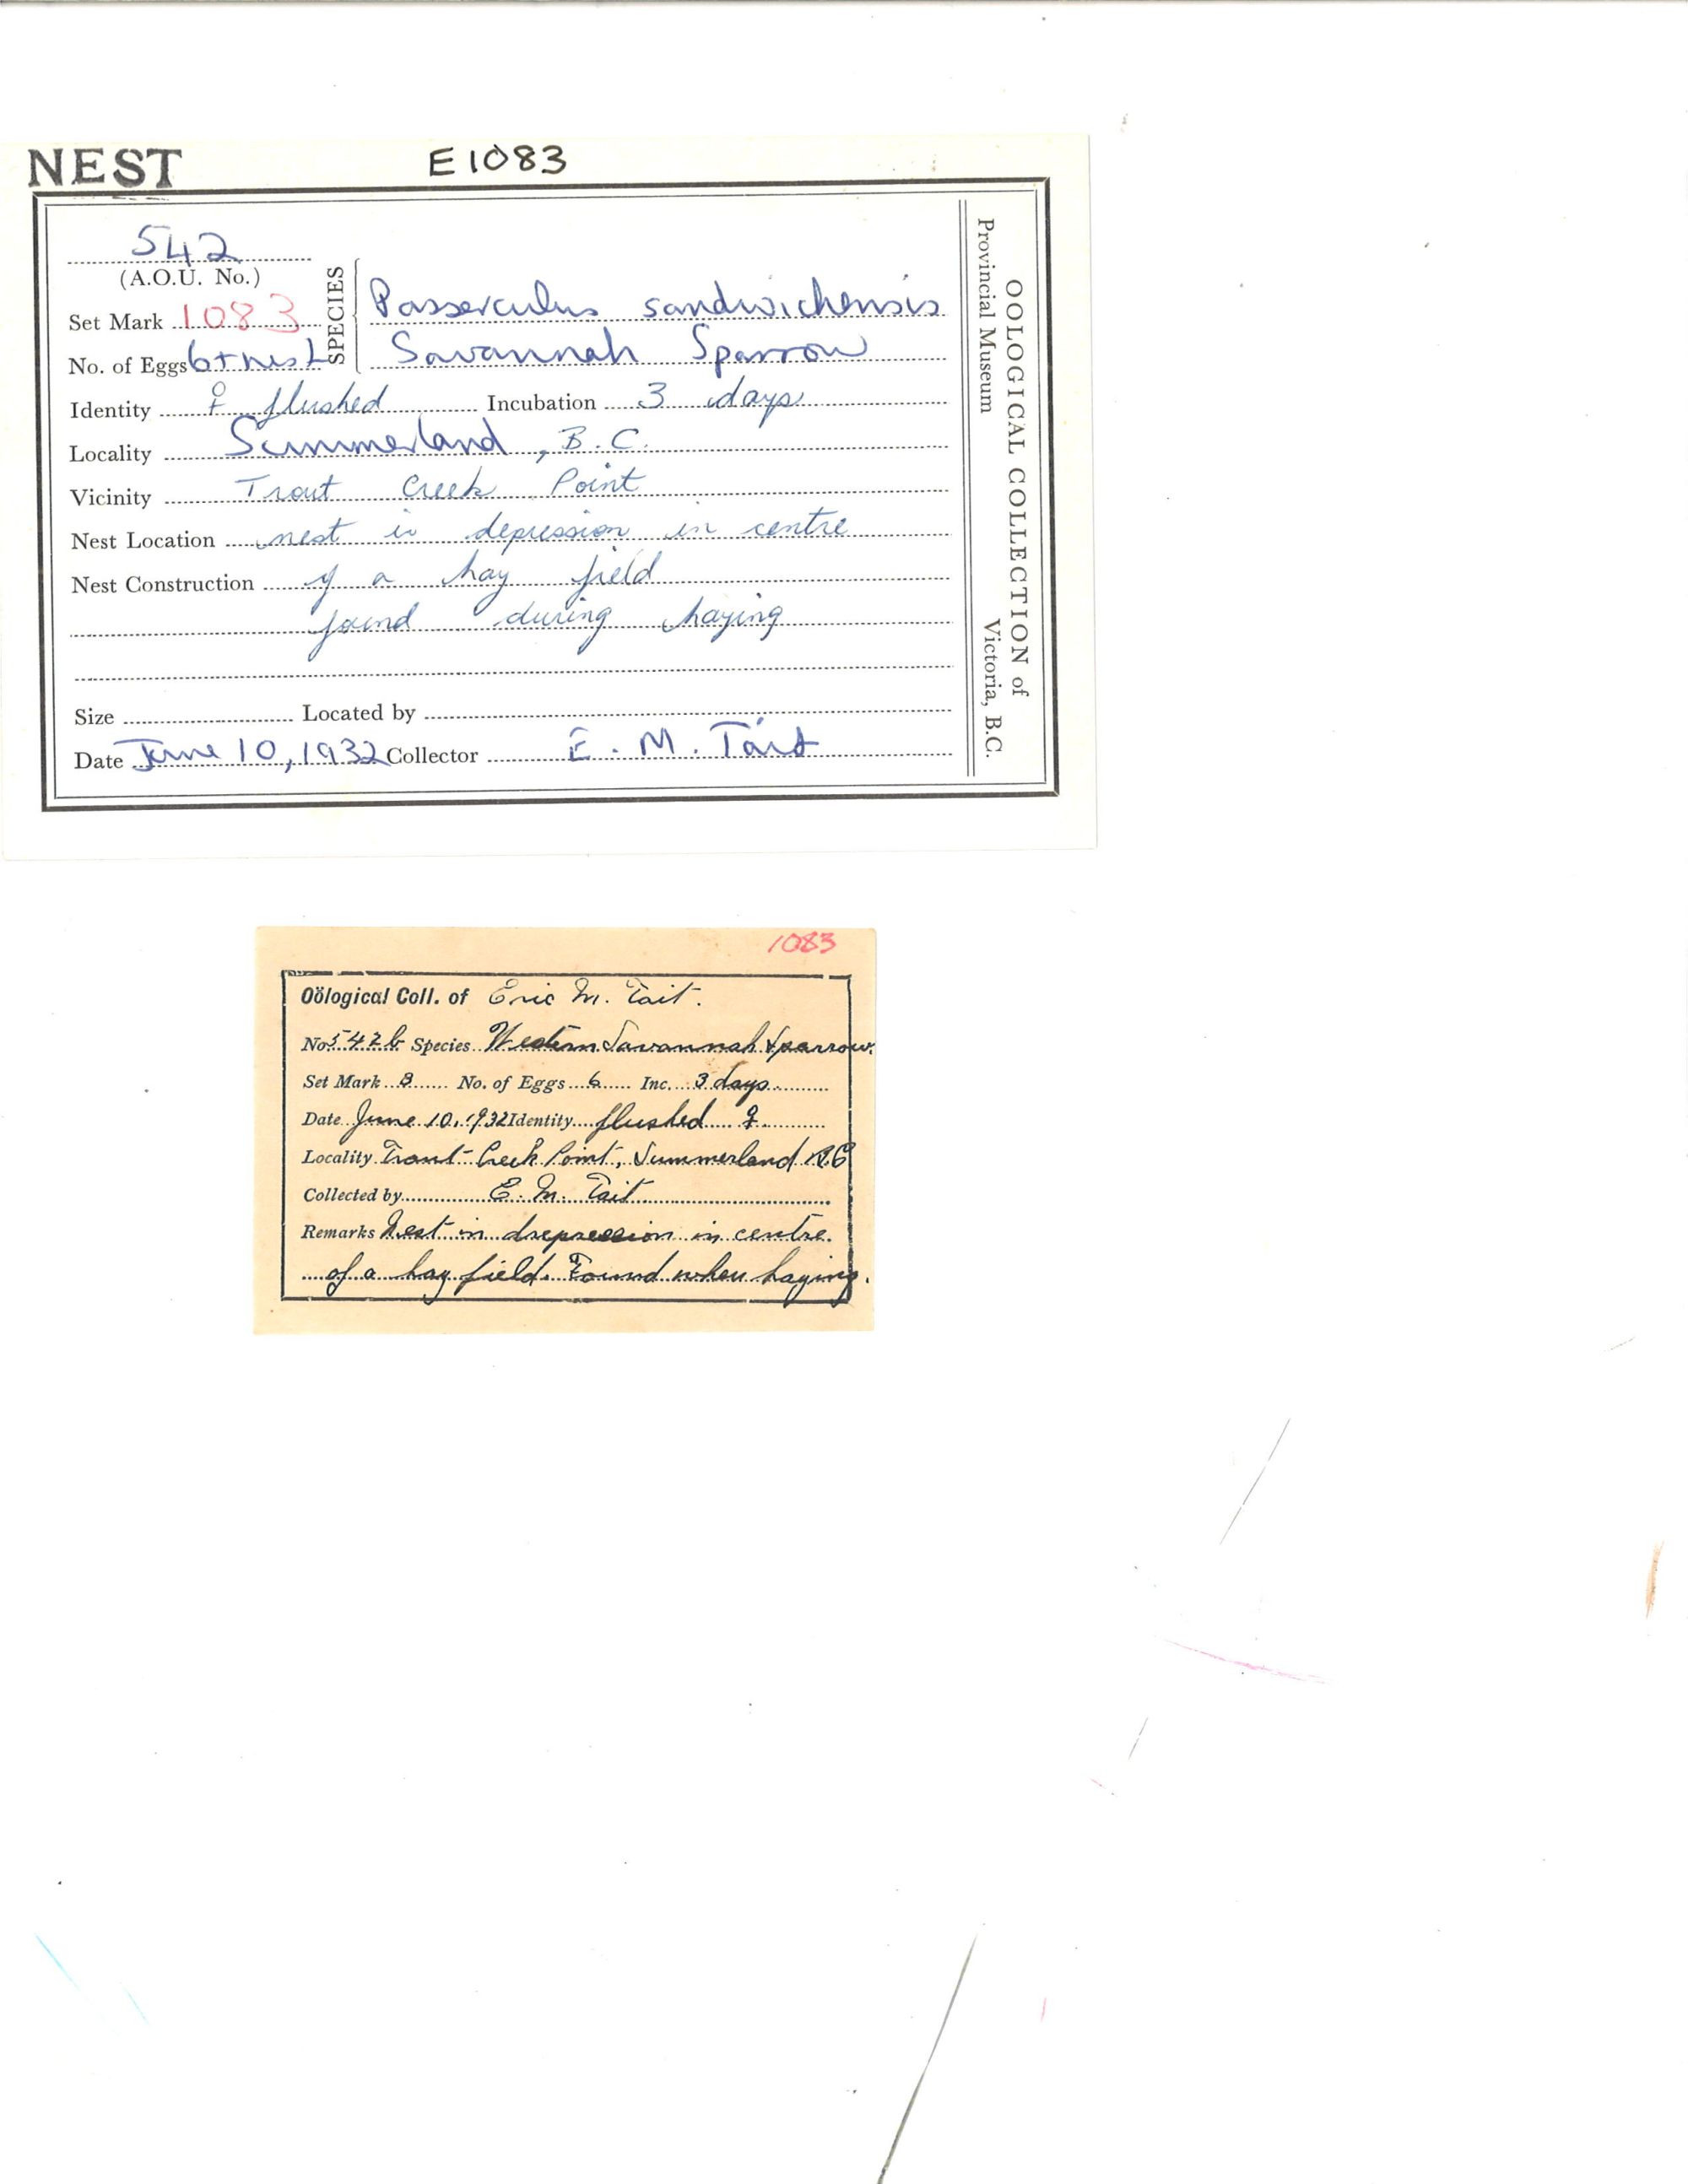 NEST E1083
542
(A.O.U. No.)
Set Mark 1083
No. of Eggs 6 + nest
SPECIES
Passerculus sandwichensis
Savannah Sparrow
Identity ♀ flushed Incubation 3 days
Locality Summerland, B.C.
Vicinity Trout Creek Point
Nest Location nest in depression in centre
Nest Construction of a hay field
found during haying
Size Located by
Date June 10, 1932 Collector E. M. Tait
OOLOGICAL COLLECTION of
Provincial Museum Victoria, B.C.
1083
Oölogical Coll. of Eric M. Tait.
No. 542b Species Western Savannah Sparrow.
Set Mark 8 No. of Eggs 6 Inc. 3 days
Date June 10, 1932 Identity flushed ♀
Locality Trout Creek Point, Summerland B.C
Collected by E. M. Tait
Remarks Nest in drepression in centre.
of a hay field. Found when haying.